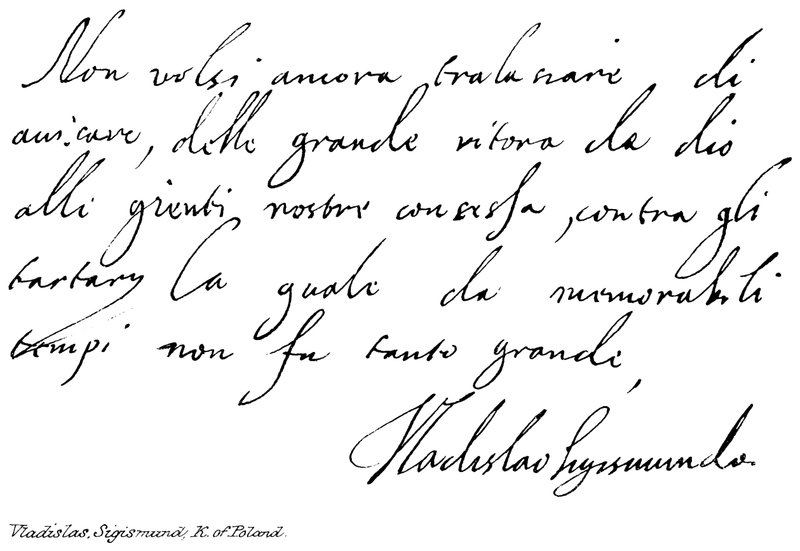 Non volsi ancora tralasciare di
avisare, delle grande vitora da dio
alli gienti nostre consessa, contra gli
tartary la quale da memorabili
tempi non fu tanto grande,
Vladislao Sigismundo.
Vladislas, Sigismund, K. of Poland.